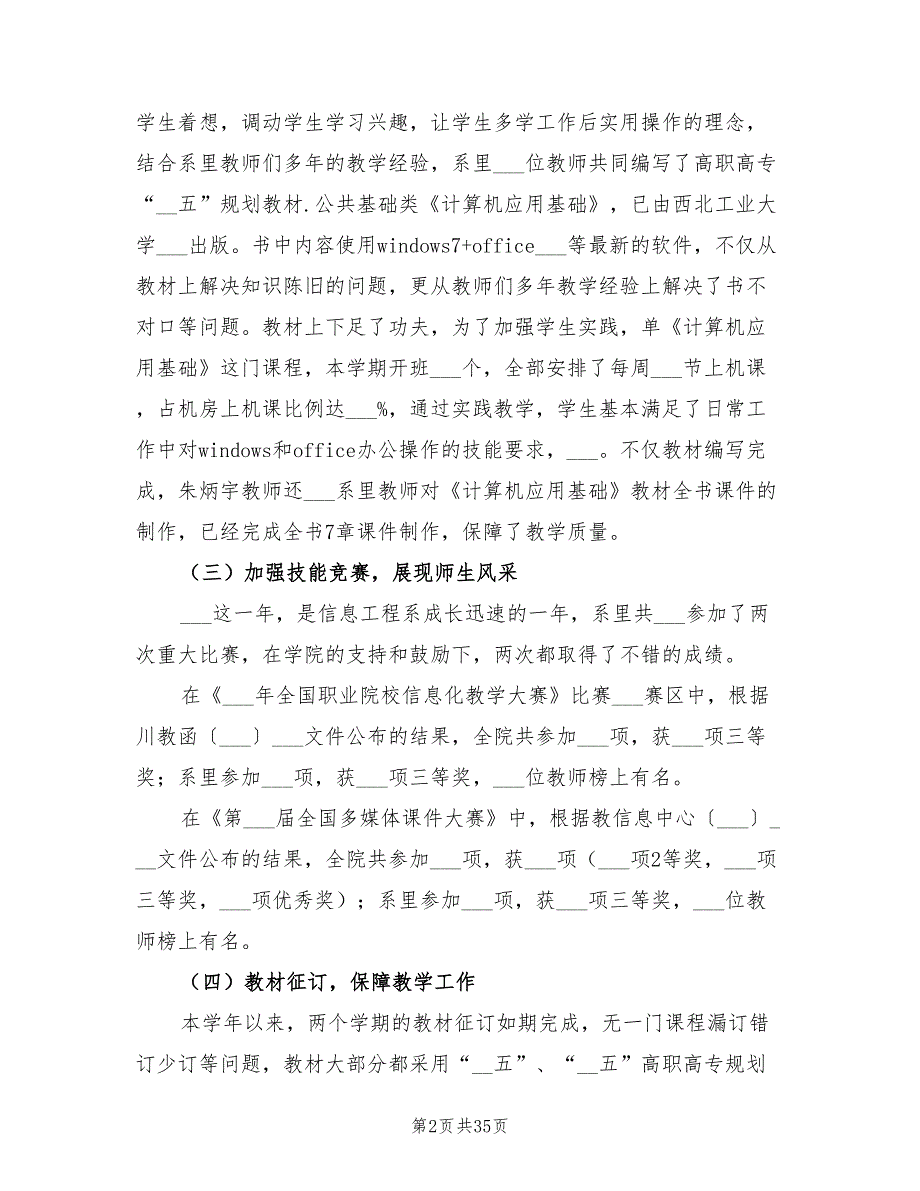 学生着想，调动学生学习兴趣，让学生多学工作后实用操作的理念，
结合系里教师们多年的教学经验，系里___位教师共同编写了高职高专
“__五”规划教材.公共基础类《计算机应用基础》，已由西北工业大
学___出版。书中内容使用windows7+office___等最新的软件，不仅从
教材上解决知识陈旧的问题，更从教师们多年教学经验上解决了书不
对口等问题。教材上下足了功夫，为了加强学生实践，单《计算机应
用基础》这门课程，本学期开班___个，全部安排了每周___节上机课
，占机房上机课比例达___%，通过实践教学，学生基本满足了日常工
作中对windows和office办公操作的技能要求，___。不仅教材编写完
成，朱炳宇教师还___系里教师对《计算机应用基础》教材全书课件的
制作，已经完成全书7章课件制作，保障了教学质量。
（三）加强技能竞赛，展现师生风采
___这一年，是信息工程系成长迅速的一年，系里共___参加了两
次重大比赛，在学院的支持和鼓励下，两次都取得了不错的成绩。
在《___年全国职业院校信息化教学大赛》比赛___赛区中，根据
川教函〔___〕___文件公布的结果，全院共参加___项，获___项三等
奖；系里参加___项，获___项三等奖，___位教师榜上有名。
在《第___届全国多媒体课件大赛》中，根据教信息中心〔___〕_
__文件公布的结果，全院共参加___项，获___项（___项2等奖，___项
三等奖，___项优秀奖）；系里参加___项，获___项三等奖，___位教
师榜上有名。
（四）教材征订，保障教学工作
本学年以来，两个学期的教材征订如期完成，无一门课程漏订错
订少订等问题，教材大部分都采用“__五”、“__五”高职高专规划
第2页共35页